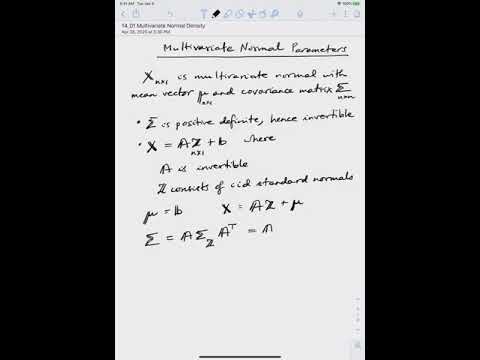 9:41 AM Tue Jan 9
100%
14_01 Multivariate Normal Density
Apr 28, 2020 at 3:30 PM
Multivariate Normal Parameters
X_{n×1} is multivariate normal with
mean vector μ_{n×1} and covariance matrix Σ_{n×n}
• Σ is positive definite, hence invertible
• X = A Z_{n×1} + b where
A is invertible
Z consists of iid standard normals
μ = b X = A Z + μ
Σ = A Σ_Z A^T = A